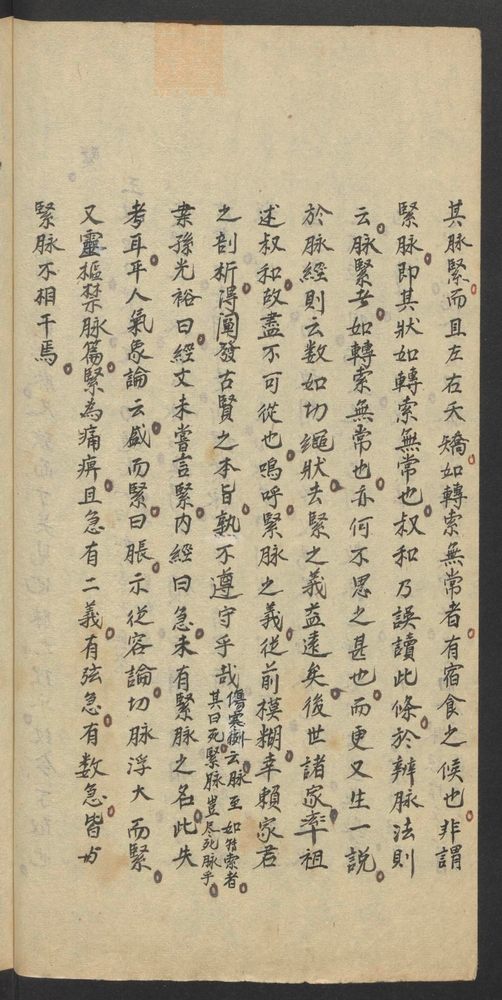 其脉緊而且左右夭矯如轉索無常者有宿食之候也非謂
緊脉即其狀如轉索無常也叔和乃誤讀此條於辨脉法則
云脉緊者如轉索無常也亦何不思之甚也而更又生一説
於脉經則云数如切繩狀去緊之義益遠矣後世諸家率祖
述叔和故盡不可從也嗚呼緊脉之義從前模糊幸賴家君
之剖析得闡發古賢之本旨孰不遵守乎哉傷寒例云脉至如轉索者
其日死緊脉豈尽死脉乎
案孫光裕曰經文未嘗言緊内經曰急未有緊脉之名此失
考耳平人氣象論云盛而緊曰脹示從容論切脉浮大而緊
又靈樞禁脉篇緊為痛痹且急有二義有弦急有数急皆与
緊脉不相干焉